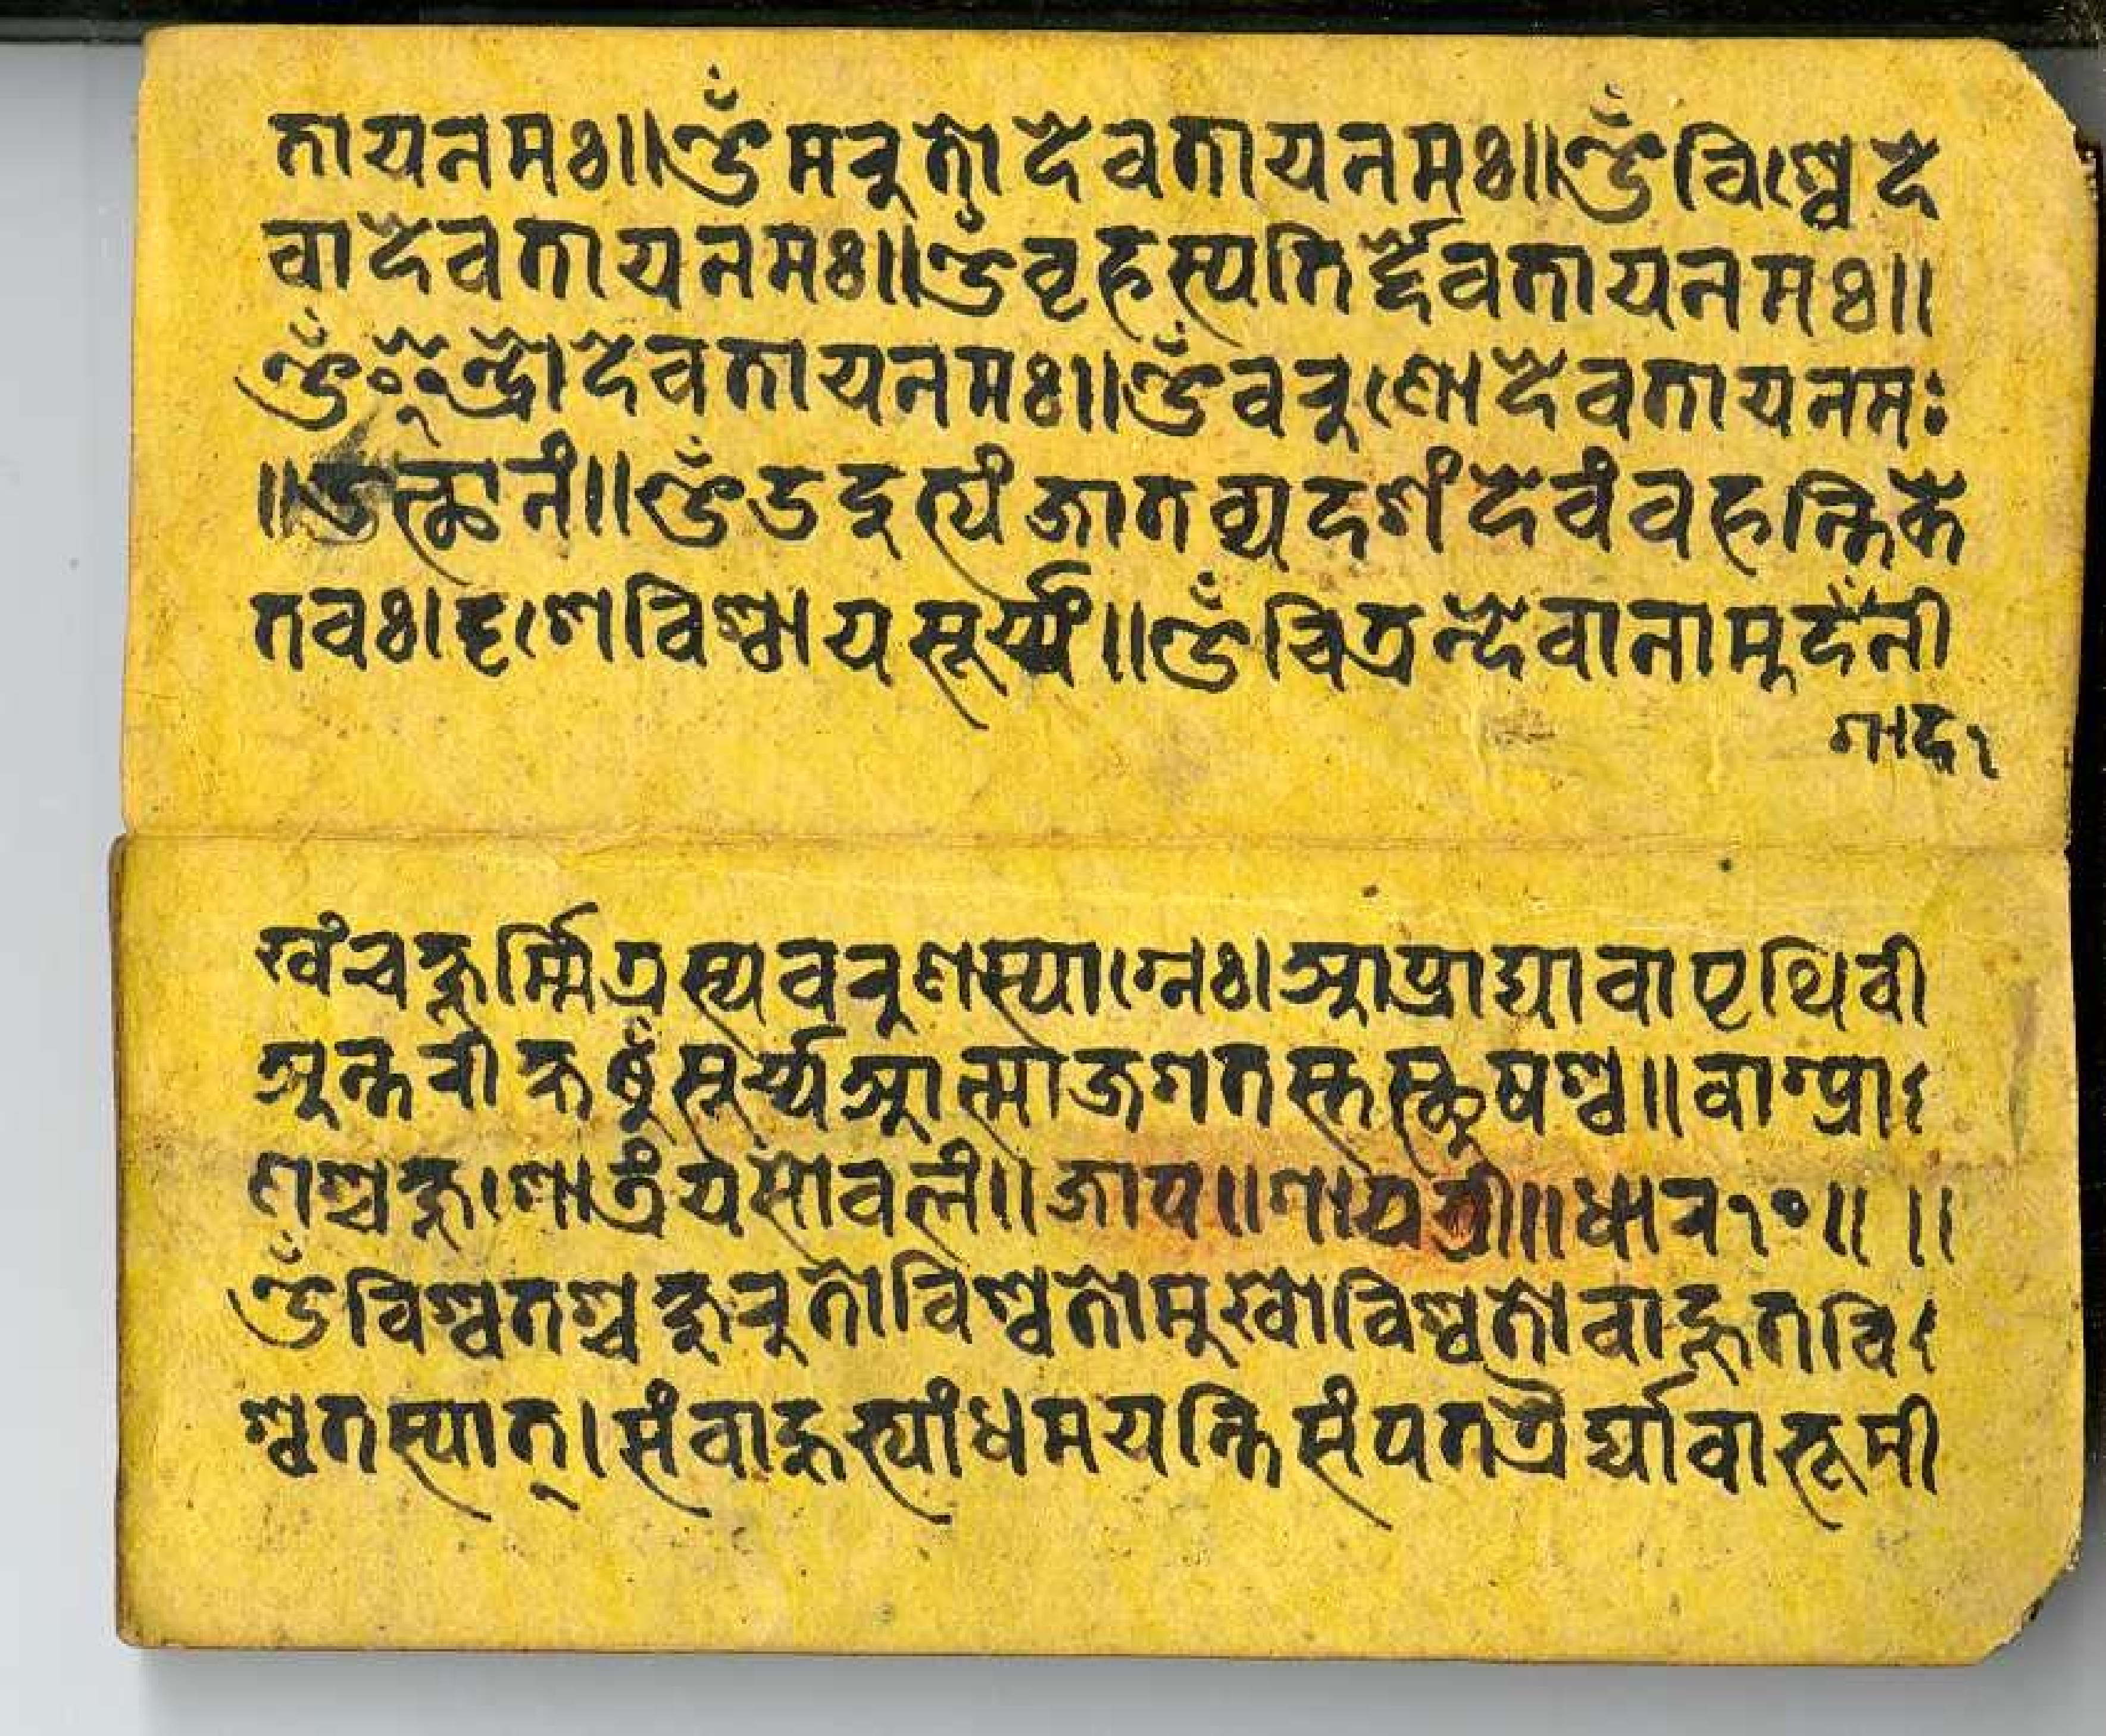 तायनमः॥ॐमरुतोदेवतायनमः॥ॐविश्वेदे
वादेवतायनमः॥ॐवृहस्पतिर्द्देवतायनमः॥
ॐइन्द्रोदेवतायनमः॥ॐवरुणोदेवतायनमः
॥उत्छानं॥ॐउदुत्यंजातवेद्यदशंदेवंवहन्तिके
तवः।दृशेविश्वायसूर्य्यं॥ॐचित्रन्देवानामुदनी
खंचक्षुर्म्मित्रस्यवरुणस्याग्नेः।आप्राद्यावापृथिवी
अन्तरीक्षꣳसूर्य्यआत्माजगतस्तस्छुषश्च॥वाग्प्रा
णश्चक्षुःश्रोत्रंयसोवलं॥जाप॥गायत्री॥धार१०॥ ॥
ॐविश्वतश्चक्षुरुतोविश्वतोमुखोविश्वतोवाहुतवि
श्वतस्पात्।संवाहुभ्यांधमयन्तिसंपतत्रैर्द्यावाभूमी